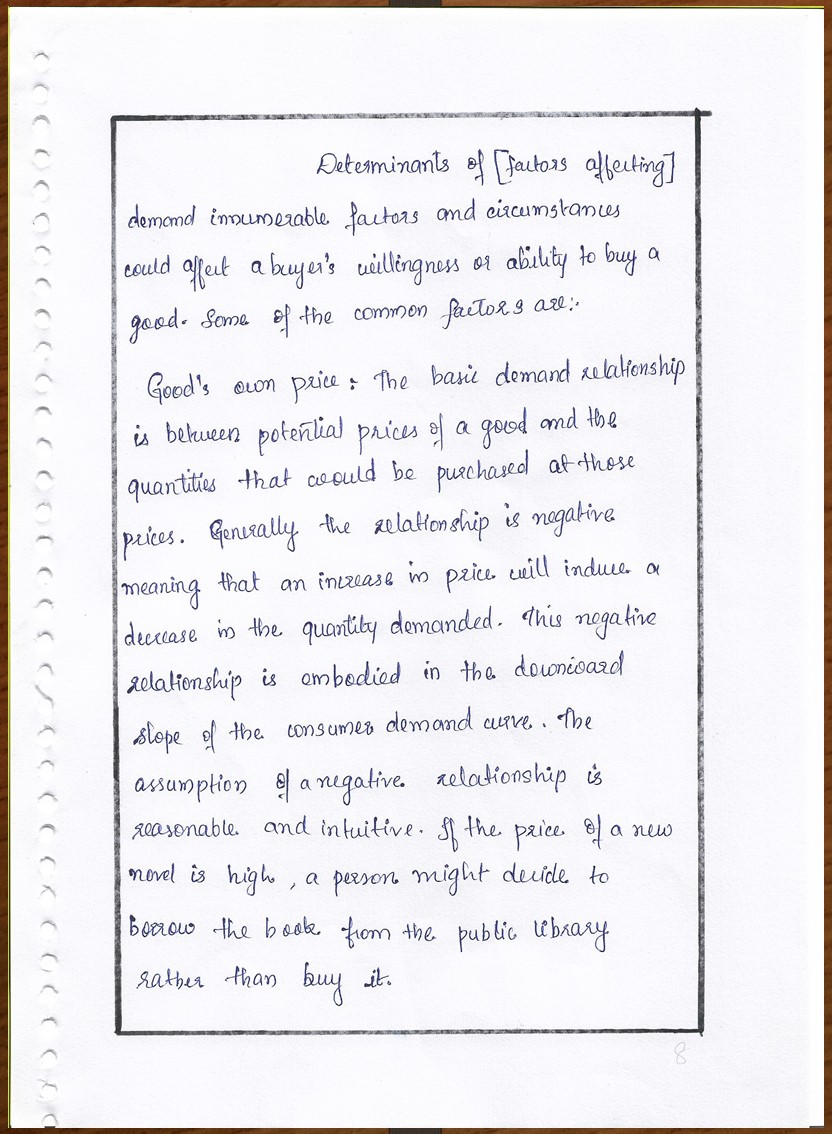 Determinants of [factors affecting]
demand innumerable factors and circumstances
could affect a buyer's willingness or ability to buy a
good. Some of the common factors are:-
Good's own price : The basic demand relationship
is between potential prices of a good and the
quantities that would be purchased at those
prices. Generally the relationship is negative
meaning that an increase in price will induce a
decrease in the quantity demanded. This negative
relationship is embodied in the downward
slope of the consumer demand curve. The
assumption of a negative relationship is
reasonable and intuitive. If the price of a new
novel is high, a person might decide to
borrow the book from the public library
rather than buy it.
8